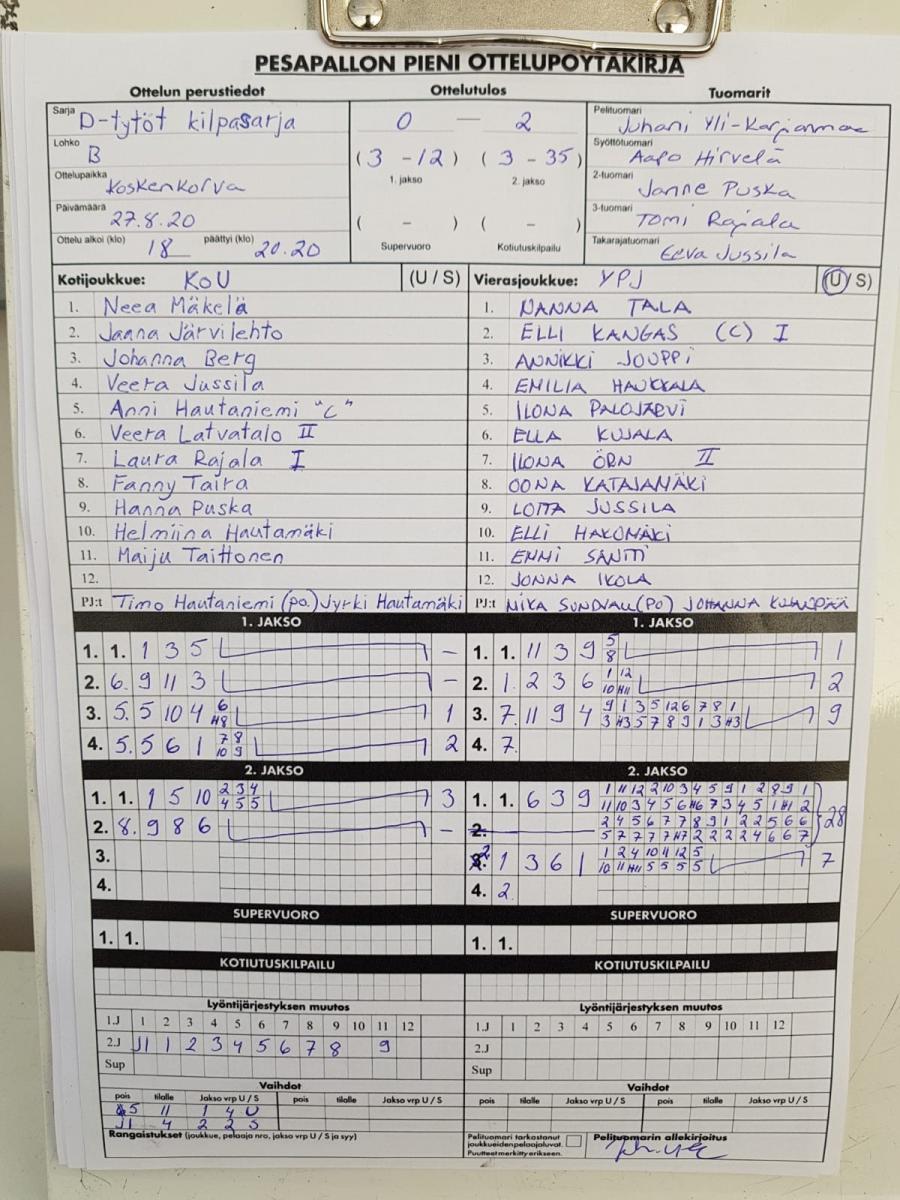 PESÄPALLON PIENI OTTELUPÖYTÄKIRJA
Ottelun perustiedot
Ottelutulos
Tuomarit
Sarja D-tytöt kilpasarja
Lohko B
Ottelupaikka Koskenkorva
Päivämäärä 27.8.20
Ottelu alkoi (klo) 18 päättyi (klo) 20.20
0 — 2
(3 - 12) (3 - 35)
1. jakso 2. jakso
( - ) ( - )
Supervuoro Kotiutuskilpailu
Pelituomari Juhani Yli-
Syöttötuomari Aapo Hirvelä
2-tuomari Janne Puska
3-tuomari Tomi Rajala
Takarajatuomari Eeva Jussila
Kotijoukkue: KoU (U / S)
1. Neea Mäkelä
2. Jaana Järvilehto
3. Johanna Berg
4. Veera Jussila
5. Anni Hautaniemi "C"
6. Veera Latvatalo II
7. Laura Rajala I
8. Fanny Taira
9. Hanna Puska
10. Helmiina Hautamäki
11. Maiju Taittonen
12.
PJ:t Timo Hautaniemi (po.) Jyrki Hautamäki
Vierasjoukkue: YPJ (U / S)
1. NANNA TALA
2. ELLI KANGAS (C) I
3. ANNIKKI JOUPPI
4. EMILIA HAUKKALA
5. ILONA PALOJÄRVI
6. ELLA KUJALA
7. ILONA ÖRN II
8. OONA KATAJAMÄKI
9. LOTTA JUSSILA
10. ELLI HAKOMÄKI
11. EMMI SANTTI
12. JONNA IKOLA
PJ:t MIKA (PO) JOHANNA
1. JAKSO
1. 1. 1 3 5 –
2. 6. 9 11 3 –
3. 5. 5 10 4 6 H8 1
4. 5. 5 6 1 7 8 10 9 2
2. JAKSO
1. 1. 1 5 10 2 3 4 4 5 5 3
2. 8. 9 8 6 –
3.
4.
SUPERVUORO
1. 1.
KOTIUTUSKILPAILU
1. JAKSO
1. 1. 11 3 9 5 8 1
2. 1. 2 3 6 1 12 10 H11 2
3. 7. 11 9 4 9 1 3 5 12 6 7 8 1
3 H3 5 7 8 9 1 3 H3 9
4. 7.
2. JAKSO
1. 1. 6 3 9 1 11 12 2 10 3 4 5 9 1 2 8 9 1
11 10 3 4 5 6 H6 7 3 4 5 1 H1 2
2. 2 4 5 6 7 7 8 9 1 2 2 5 6 6 28
5 7 7 7 7 H7 2 2 2 2 4 6 6 7
2. 1 3 6 1 1 2 4 10 11 12 5
10 11 H11 5 5 5 5 7
4. 2
SUPERVUORO
1. 1.
KOTIUTUSKILPAILU
Lyöntijärjestyksen muutos
1.J 1 2 3 4 5 6 7 8 9 10 11 12
2.J J1 1 2 3 4 5 6 7 8 9
Sup
Lyöntijärjestyksen muutos
1.J 1 2 3 4 5 6 7 8 9 10 11 12
2.J
Sup
Vaihdot
pois tilalle Jakso vrp U / S pois tilalle Jakso vrp U / S
5 11 1 4 U
J1 4 2 2 S
Vaihdot
pois tilalle Jakso vrp U / S pois tilalle Jakso vrp U / S
Rangaistukset (joukkue, pelaaja nro, jakso vrp U / S ja syy)
Pelituomari tarkastanut
joukkueiden pelaajaluvat.
Puutteet merkitty erikseen.
Pelituomarin allekirjoitus